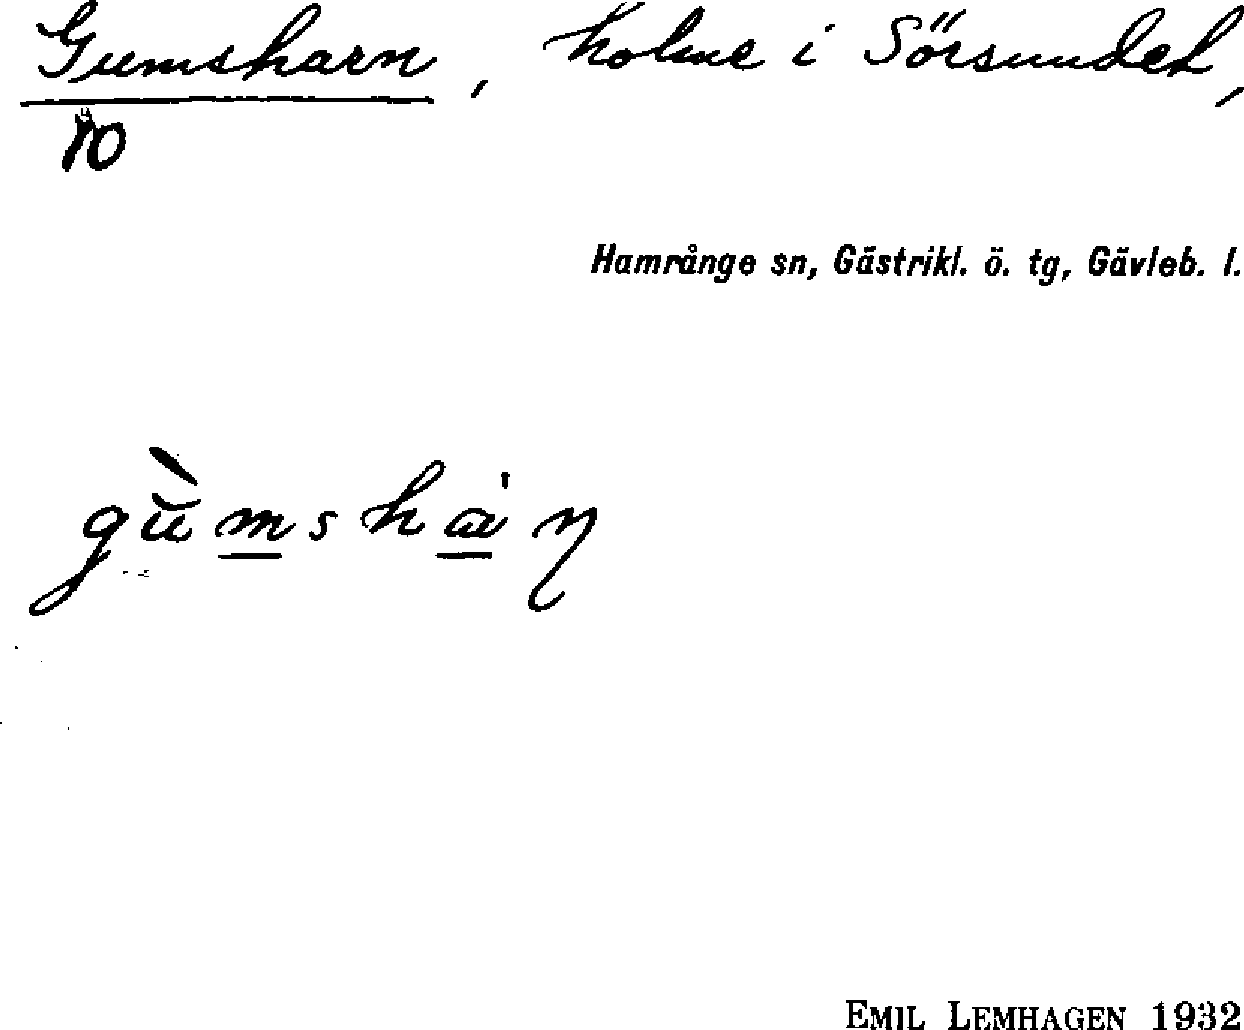 Gumsharn, holme i Sörsundet,
Hamrånge sn, Gästrikl. ö. tg, Gävleb. l.
EMIL LEMHAGEN 1932